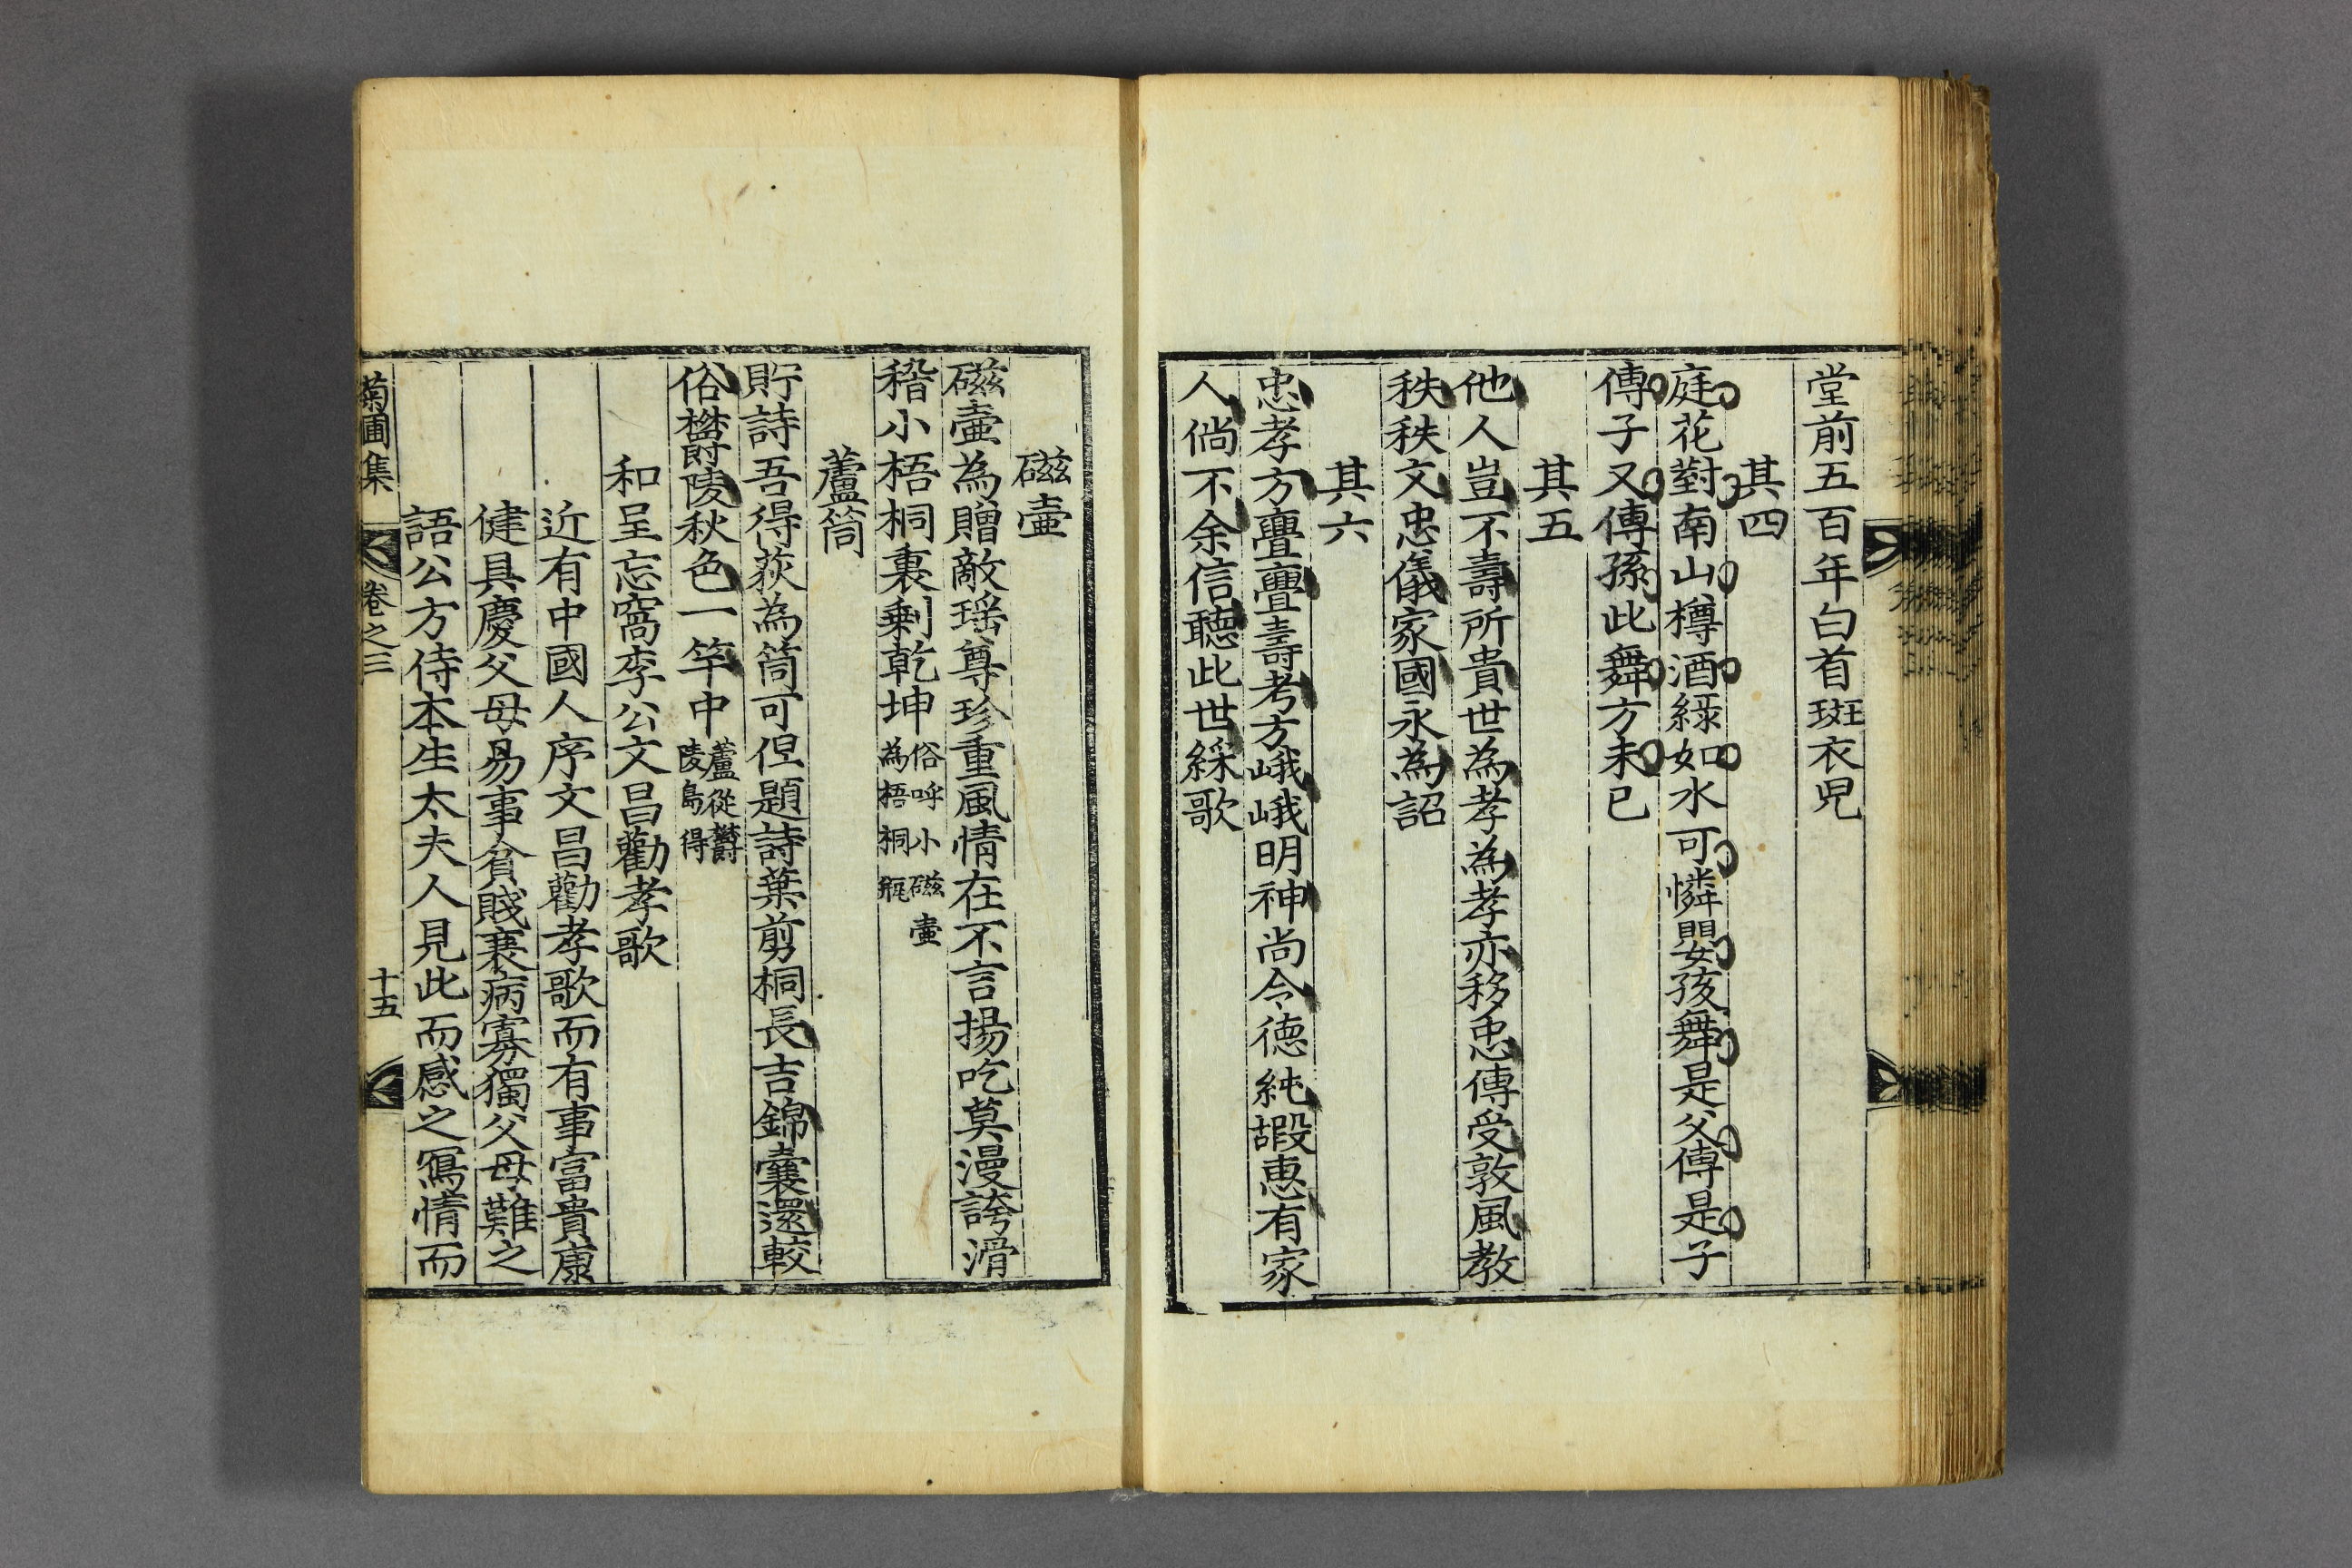 堂前五百年白首斑衣兒
其四
庭花對南山樽酒綠如水可憐嬰孩舞是父傳是子
傳子又傳孫此舞方未已
其五
他人豈不壽所貴世為孝為孝亦移忠傳受敦風教
秩秩文忠儀家國永為詔
其六
忠孝方亹亹壽考方峨峨明神尚令德純嘏惠有家
人倘不余信聽此世綵歌
磁壷
磁壷為贈敵瑶尊珍重風情在不言揚吃莫漫誇滑
稽小梧桐裏剩乾坤
俗呼小磁壷
為梧桐瓶
蘆筒
貯詩吾得荻為筒可但題詩葉剪桐長吉錦囊還較
俗欝陵秋色一竿中
蘆從欝
陵島得
和呈忘窩李公文昌勸孝歌
近有中國人序文昌勸孝歌而有事富貴康
健具慶父母易事貧賤衰病寡獨父母難之
語公方侍本生太夫人見此而感之寫情而
菊圃集 卷之三 十五